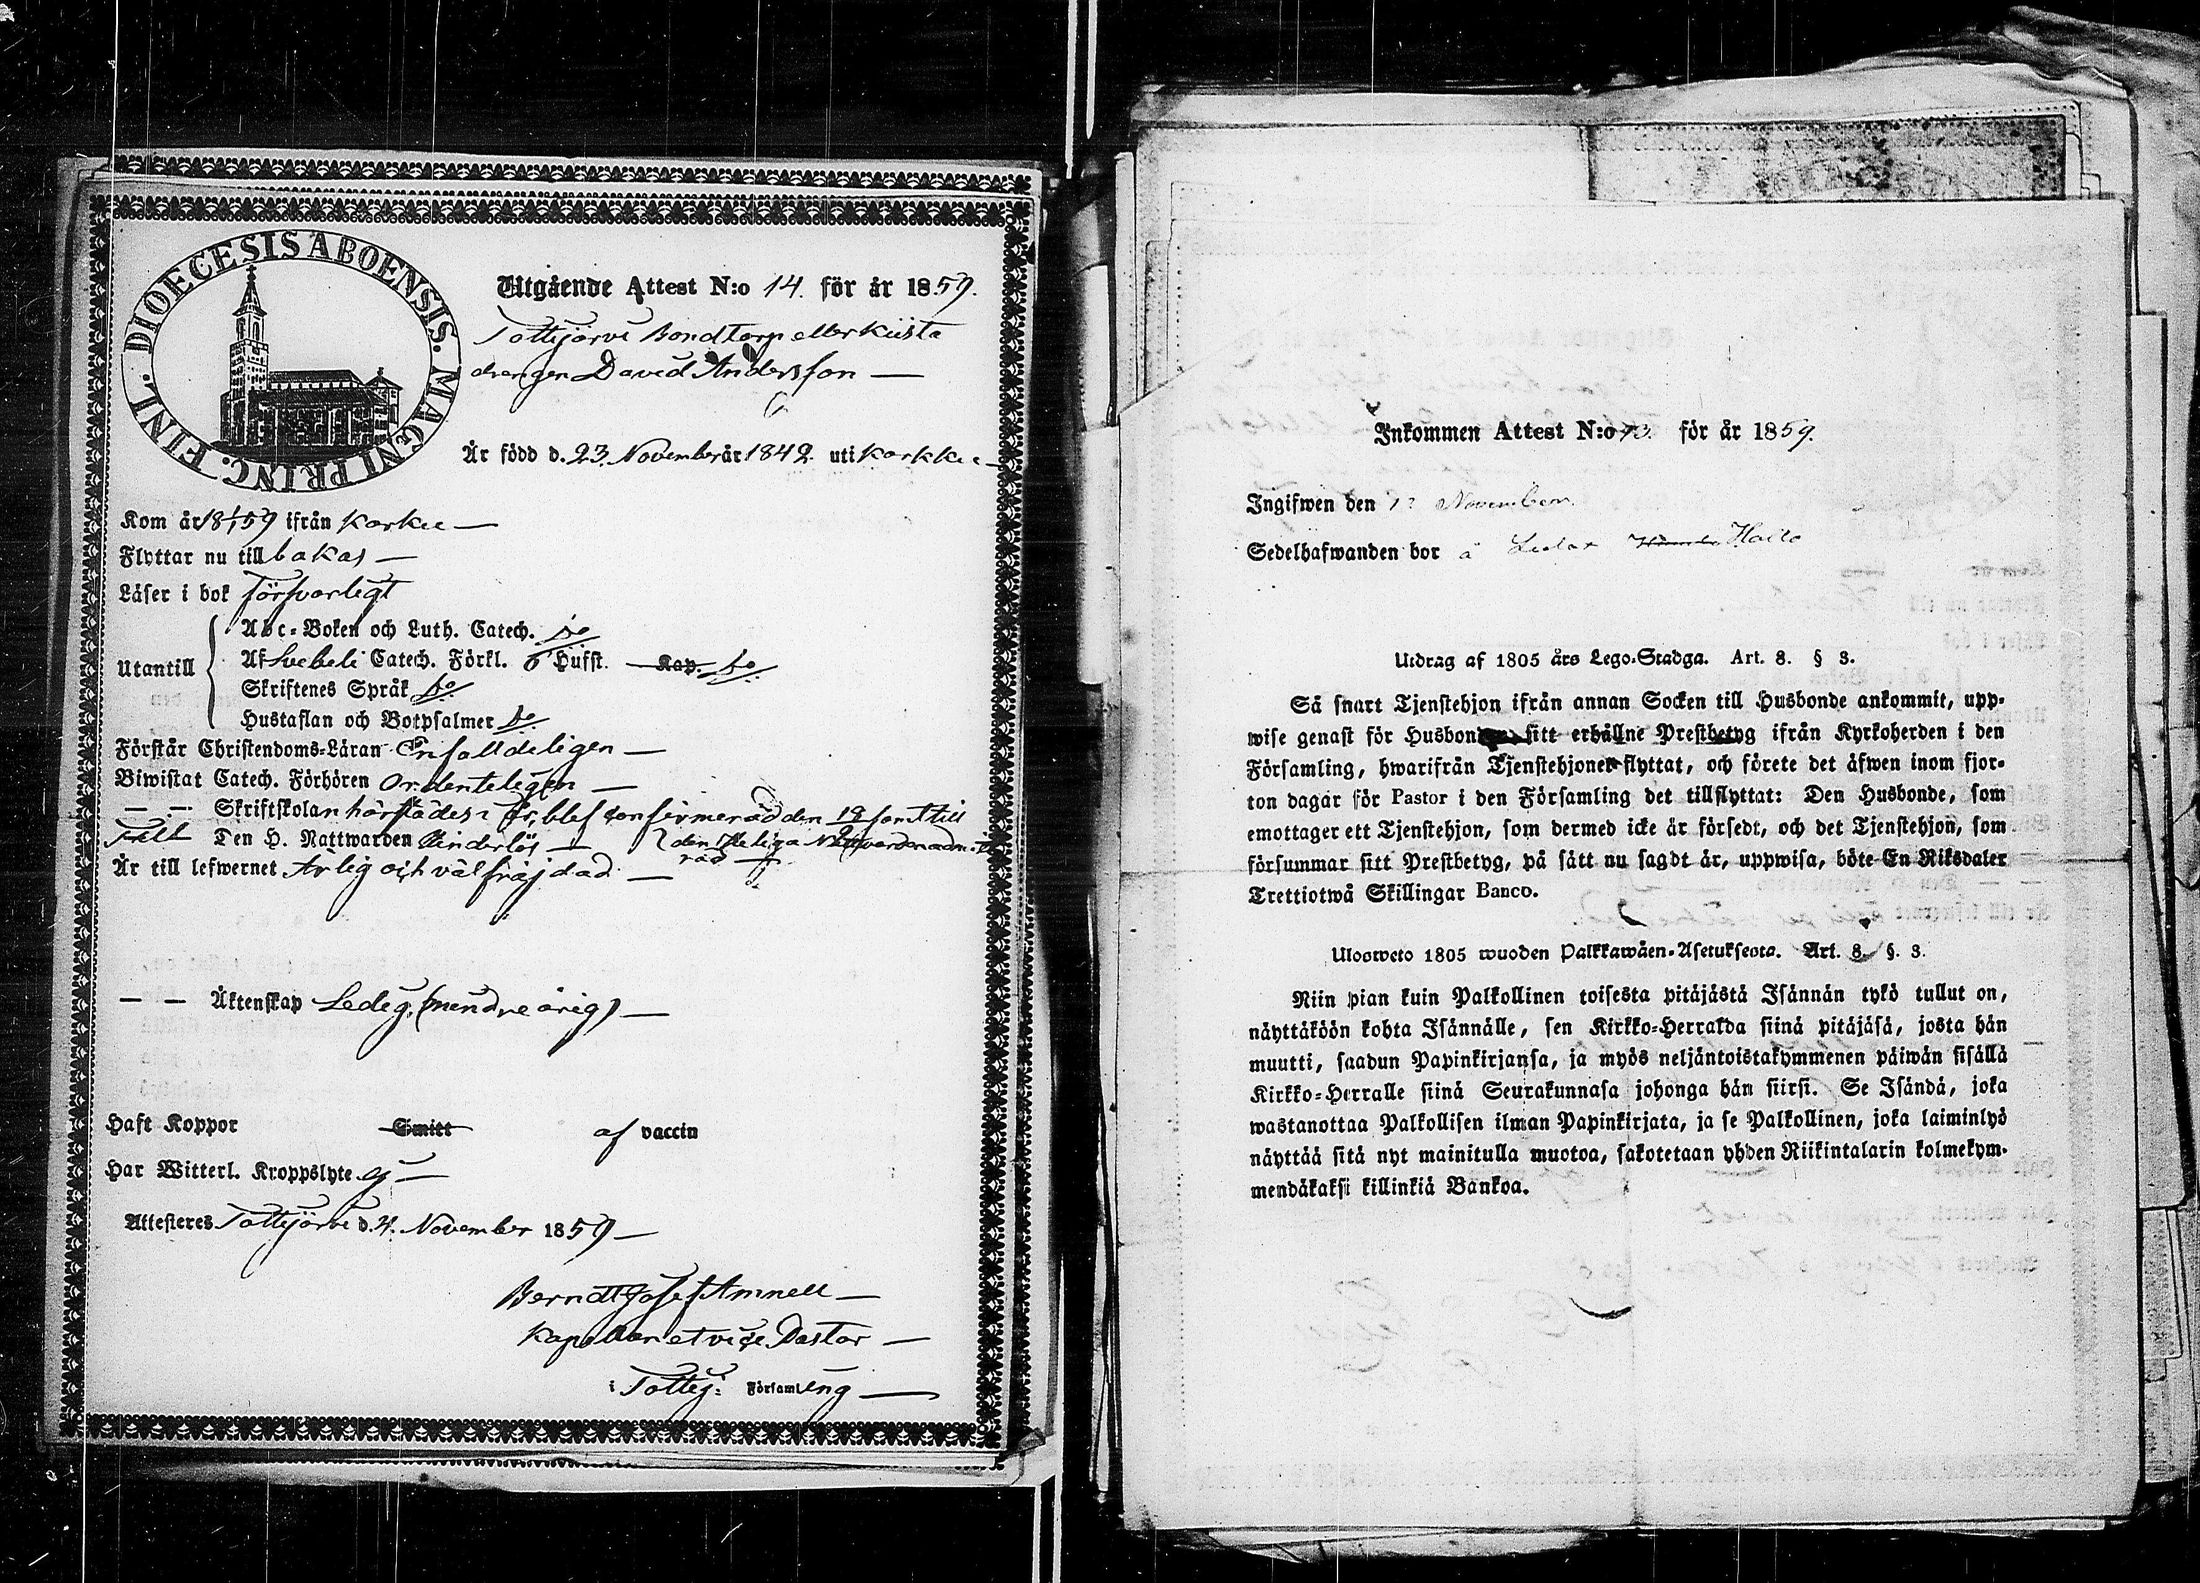 DIOECESIS ABOENSIS. MAGNI PRINC. FINL.
Utgående Attest N:o 14. för år 1859.
Tottijärvi Bondtorp eller Kiista
drengen David Andersson —
Är född d. 23. November år 1842. uti Karkku —
Kom år 18 59 ifrån Karku —
Flyttar nu till bakas —
Läser i bok försvarligt
Utantill
Abc-Boken och Luth. Catech. do
Af Svebeli Catech. Förkl. 6 Hufst. Kap. do
Skriftenes Språk do
Hustaflan och Botpsalmer do
Förstår Christendoms-Läran Enfalldeligen —
Biwistat Catech. Förhören Ordenteligen —
— — Skriftskolan härstädes i år, blef confirmerad den samt till
Den H. Nattwarden Hinderlös — den Heliga Nattvarden
Är till lefwernet Ärlig och välfräjdad —
— — Äktenskap Ledig, (mindre årig) —
Haft Koppor Smitt af vaccin
Har Witterl. Kroppslyte ej —
Attesteres Tottijärvi d. 4. November 1859 —
Berndt Josef Amnell —
Kapellan et vice Pastor —
i Tottij: Församling —
Inkommen Attest N:o 73. för år 1859.
Ingifwen den November
Sedelhafwanden bor å
Utdrag af 1805 års Lego-Stadga. Art. 8. § 3.
Så snart Tjenstehjon ifrån annan Socken till Husbonde ankommit, upp-
wise genast för Husbonden sitt erhållne Prestbetyg ifrån Kyrkoherden i den
Församling, hwarifrån Tjenstehjonet flyttat, och förete det äfwen inom fjor-
ton dagar för Pastor i den Församling det tillflyttat: Den Husbonde, som
emottager ett Tjenstehjon, som dermed icke är försedt, och det Tjenstehjon, som
försummar sitt Prestbetyg, på sätt nu sagdt är, uppwisa, böte En Riksdaler
Trettiotwå Skillingar Banco.
Ulosweto 1805 wuoden Palkkawäen-Asetuksesta. Art. 8. §. 3.
Niin pian kuin Palkollinen toisesta pitäjästä Isännän tykö tullut on,
näyttäköön kohta Isännälle, sen Kirkko-Herralda siinä pitäjäsä, josta hän
muutti, saadun Papinkirjansa, ja myös neljäntoistakymmenen päiwän sisällä
Kirkko-Herralle siinä Seurakunnasa johonga hän siirsi. Se Isändä, joka
wastanottaa Palkollisen ilman Papinkirjata, ja se Palkollinen, joka laiminlyö
näyttää sitä nyt mainitulla muotoa, sakotetaan yhden Riikintalarin kolmekym-
mendäkaksi killinkiä Bankoa.